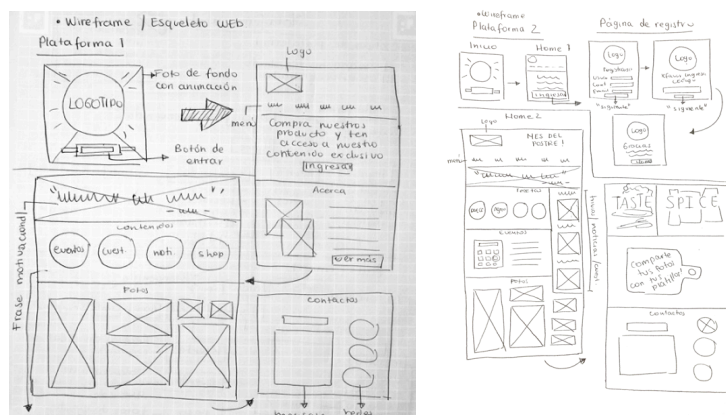 • Wireframe / Esqueleto WEb
Plataforma 1
LOGOTIPO
Foto de fondo
con animación
Botón de
entrar
Logo
menú
Compra nuestros
producto y ten
acceso a nuestro
contenido exclusivo
Ingresar
Acerca
ver más
Frase motivacional
Contenidos
eventos
cuest.
noti.
shop
Fotos
Contactos
redes
• Wireframe
Plataforma 2
Inicio
Home 1
Ingresar
Página de registro
Logo
Registrarse
"siguiente"
Logo
"siguiente"
Logo
Gracias
Home 2
Logo
menú
MES DEL
POSTRE!
Eventos
Fotos
TASTE
SPICE
Comparte
tus fotos
con tus
platillos!
Contactos